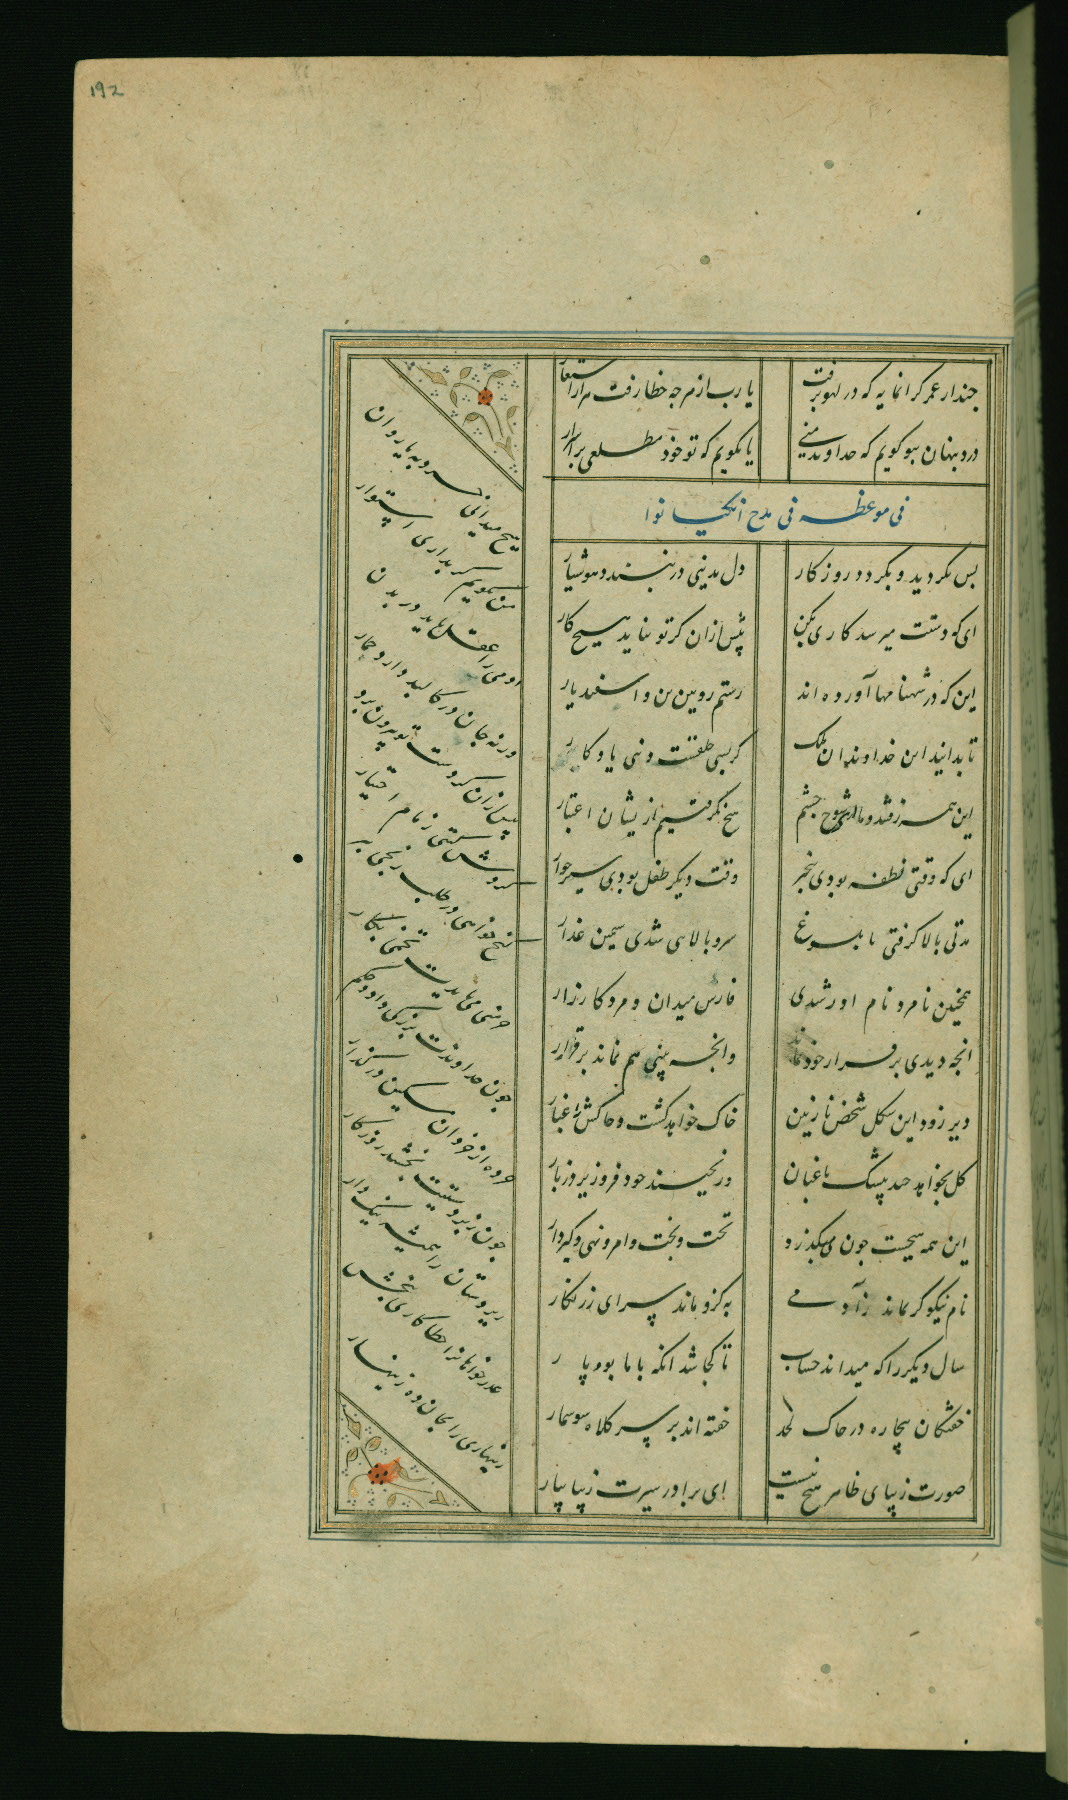 192
چندار عمر گرانمایه که در لهو برفت یا رب از هرچه خطا رفت هزار استغفار
درد پنهان بتو گویم که خداوند منی یا نگویم که تو خود مطلعی بر اسرار
فی موعظه فی مدح انکیانوا
بس بگردید و بگردد روزگار دل بدنیی در نبندد هوشیار
ای که دستت میرسد کاری بکن پیش از ان کز تو نیاید هیچ کار
این که در شهنامها آورده اند رستم رویین تن و اسفندیار
تا بدانید این خداوندان ملک کز بسی خلقست دنیی یادکار
این همه رفتند و ما ای شوخ چشم هیچ نگرفتیم از ایشان اعتبار
ای که وقتی نطفه بودی بیخبر وقت دیگر طفل بودی شیرخوار
مدتی بالا گرفتی تا بلوغ سرو بالایی شدی سیمین عذار
همچنین تا مرد نام اور شدی فارس میدان و مرد کارزار
انچه دیدی بر قرار خود نماند وانچه بینی هم نماند برقرار
دیر زود این شکل شخص نازنین خاک خواهد گشت و خاکش غبار
گل بخواهد چید بیشک باغبان ور نچیند خود فرو ریزد ز بار
این همه هیچست چون می بگذرد تخت و بخت و امر و نهی و گیر و دار
نام نیکو گر بماند ز آدمی به کزو ماند سرای زرنگار
سال دیگر را که میداند حساب تا کجا شد انکه با ما بود پار
خفتگان بیچاره در خاک لحد خفته اند بر سر کلاه سوسمار
صورت زیبای ظاهر هیچ نیست ای برادر سیرت زیبا بیار
هیچ میدانی خرد به یا روان
من بگویم گر بداری استوار
آدمی را عقل باید در بدن
ورنه جان در کالبد دارد حمار
پیش از ان کز دست تو بیرون برد
گردش گیتی زمام اختیار
گنج خواهی در طلب رنجی ببر
خرمنی می بایدت تخمی بکار
چون خداوندت بزرگی داد و حکم
خرده از خردان مسکین در گذار
چون زبردستیت بخشد روزگار
زیردستان را همیشه نیک دار
عذرخواهانرا خطاکاری ببخش
زینهاری را بجان ده زینهار